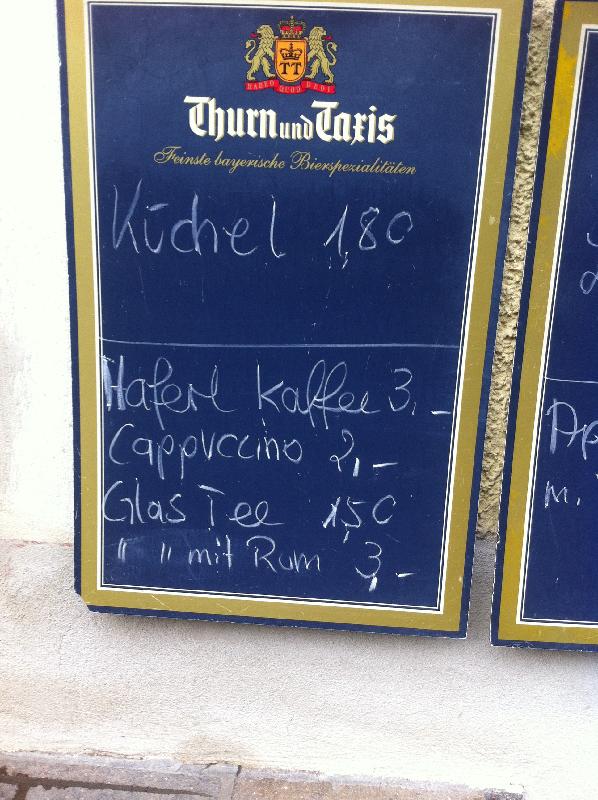 HABEO QUOD DEDI
TT
Thurn und Taxis
Feinste bayerische Bierspezialitäten
Küchel 1,80
Haferl Kaffee 3,-
Cappuccino 2,-
Glas Tee 1,50
" " mit Rum 3,-
m.